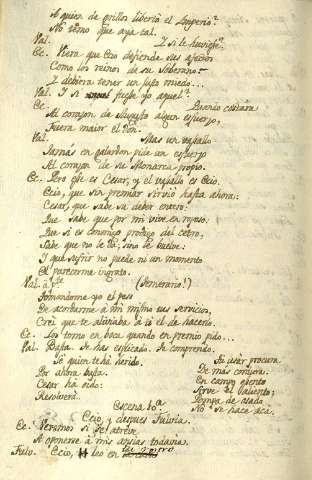 A quien de grillos libertó el Imperio?
No temo que aya tal.
Val. Y si le huviesse?
Ec. Viera que Ecio defiende sus
Como los reinos de su Soberano?
Y debiera tener un justo miedo...
Val. Y si fuesse yo aquel?
Ec. Quanto costára
Al corazon de Augusto algun esfuerzo,
Fuera maior el don.
Val. Mas un vassallo
Jamás en galardon pide un esfuerzo
Al corazon de su Monarca propio.
Ec. Pero esse es Cesar, y el vassallo es Ecio.
Ecio, que sin premiar sirvió hasta ahora:
Cesar, que sabe su deber entero:
Que sabe que por mi vive en reposo:
Que si es conmigo prodigo del cetro,
Sabe que no le dá; sino le buelve:
Y que sufrir no puede ni un momento
El parecerme ingrato.
Val. á pte (Temerario!)
Tomandome yo el peso
De acordarme á mi mismo tus servicios,
Creí que te aliviaba á ti el de hacerlo.
Ec. Los tomo en boca quando en premio pido...
Val. Basta. Te has esplicado. Te comprendo.
Sé quien te há oido.
Por ahora basta.
Cesar há oido:
Resolverá.
Te usar procura
De más cordura.
En campo abierto
Sirve el valiente;
Pompa de osado
No se hace acá.
Escena 10ª
Ecio, y despues Fulvia.
Ec. Veremos si se atreve
A oponerse á mis ansias todavia.
Fulv. Ecio, leo en tu rostro